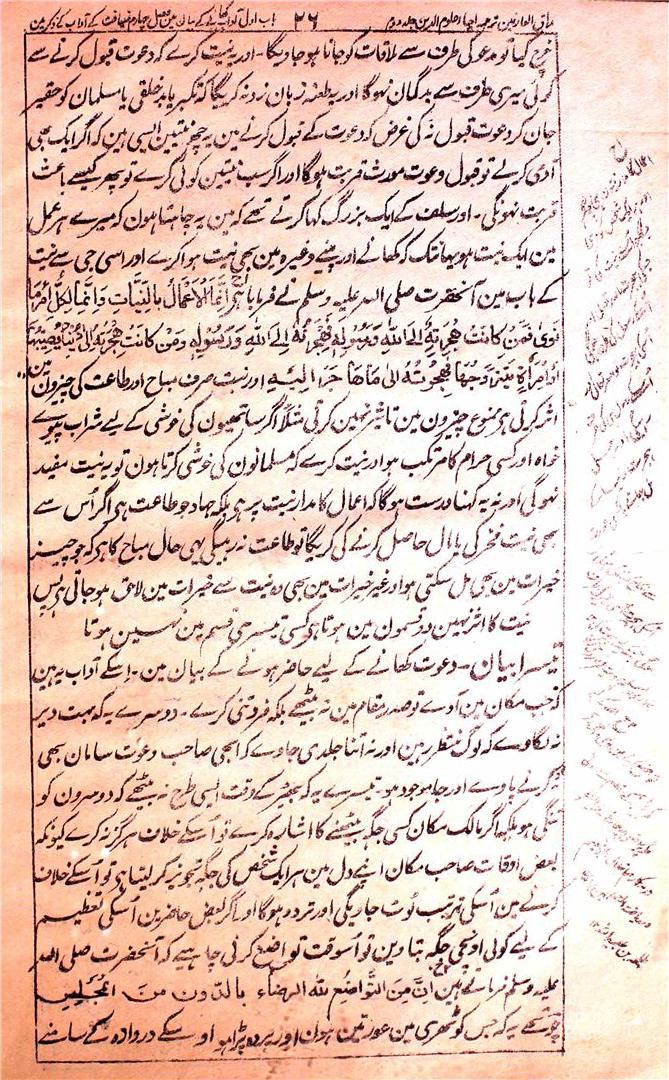 مذاق العارفین ترجمہ احیاء علوم الدین جلد دوم ۲۶ باب اول آداب کھانے کے بیان مین فصل چہارم ضیافت کے آداب کے ذکر مین
خرچ کیا تو مدعو کی طرف سے ملاقات کو جانا ہو جاویگا۔ اور یہ نیت کرے کہ دعوت قبول کرنے سے
کوئی میری طرف سے بدگمان نہوگا اور یہ طعنہ زبان زد نہ کریگا کہ تکبر یا بدخلقی یا مسلمان کو حقیر
جان کر دعوت قبول نہ کی غرض کہ دعوت کے قبول کرنے مین یہ چھ نیتین ایسی ہین کہ اگر ایک بھی
آدمی کر لے تو قبول دعوت مورث قربت ہوگا اور اگر سب نیتین کوئی کرے تو پھر کیسے باعث
قربت نہونگی۔ اور سلف کے ایک بزرگ کہا کرتے تھے کہ مین یہ چاہتا ہون کہ میرے ہر عمل
مین ایک نیت ہو یہانتک کہ کھانے اور پینے وغیرہ مین بھی نیت ہوا کرے اور اسی جی سے نیت
کے باب مین آنحضرت صلی اللہ علیہ وسلم نے فرمایا ہی اِنَّمَا الْاَعْمَالُ بِالنِّیَّاتِ وَاِنَّمَا لِکُلِّ امْرِءٍ مَا
نَوٰی فَمَنْ کَانَتْ هِجْرَتُهٗ اِلَی اللهِ وَرَسُوْلِهٖ فَهِجْرَتُهٗ اِلَی اللهِ وَرَسُوْلِهٖ وَمَنْ کَانَتْ هِجْرَتُهٗ اِلٰی دُنْیَا یُصِیْبُهَا
اَوِ امْرَأَةٍ یَتَزَوَّجُهَا فَهِجْرَتُهٗ اِلٰی مَا هَاجَرَ اِلَیْهِ اور نیت صرف مباح اور طاعت کی چیزون مین
اثر کرتی ہی ممنوع چیزون مین تاثیر نہین کرتی مثلاً اگر ساتھیون کی خوشی کے لیے شراب پیوے
خواہ اور کسی حرام کا مرتکب ہو اور نیت کرے کہ مسلمانون کی خوشی کرتا ہون تو یہ نیت مفید
نہوگی اور نہ یہ کہنا درست ہوگا کہ اعمال کا مدار نیت پر ہی بلکہ جہاد جو طاعت ہی اگر اُس سے
بھی نیت فخر کی یا مال حاصل کرنے کی کریگا تو طاعت نہ رہیگی یہی حال مباح کا ہی کہ جو چیز
خیرات مین بھی مل سکتی ہو اور غیر خیرات مین بھی وہ نیت سے خیرات مین لاحق ہو جاتی ہی پس
نیت کا اثر انہین دو قسمون مین ہوتا ہی کسی تیسری قسم مین نہین ہوتا
تیسرا بیان۔ دعوت کھانے کے لیے حاضر ہونے کے بیان مین۔ اسکے آداب یہ ہین
کہ جب مکان مین آوے تو صدر مقام مین نہ بیٹھے بلکہ فروتنی کرے۔ دوسرے یہ کہ بہت دیر
نہ لگاوے کہ لوگ منتظر رہین اور نہ اتنا جلدی جاوے کہ ابھی صاحب دعوت سامان بھی
نکرنے پاوے اور جا موجود ہو تیسرے یہ کہ بھیڑ کے وقت اسی طرح نہ بیٹھے کہ دوسرون کو
تنگی ہو بلکہ اگر مالک مکان کسی جگہ بیٹھنے کا اشارہ کرے تو اُسکے خلاف ہرگز نہ کرے کیونکہ
بعض اوقات صاحب مکان اپنے دل مین ہر ایک شخص کی جگہ تجویز کر لیتا ہی تو اُسکے خلاف
کرنے مین اُسکی ترتیب ٹوٹ جاویگی اور تردد ہوگا اور اگر بعض حاضرین اُسکی تعظیم
کے لیے کوئی اونچی جگہ بتا دین تو اُسوقت تواضع کرنی چاہیے کہ آنحضرت صلی اللہ
علیہ وسلم فرماتے ہین اِنَّ مِنَ التَّوَاضُعِ لِلّٰهِ الرِّضَاءَ بِالدُّوْنِ مِنَ الْمَجْلِسِ
چوتھے یہ کہ جس کوٹھری مین عورتین ہون اور پردہ پڑا ہو اوسکے دروازہ کے سامنے